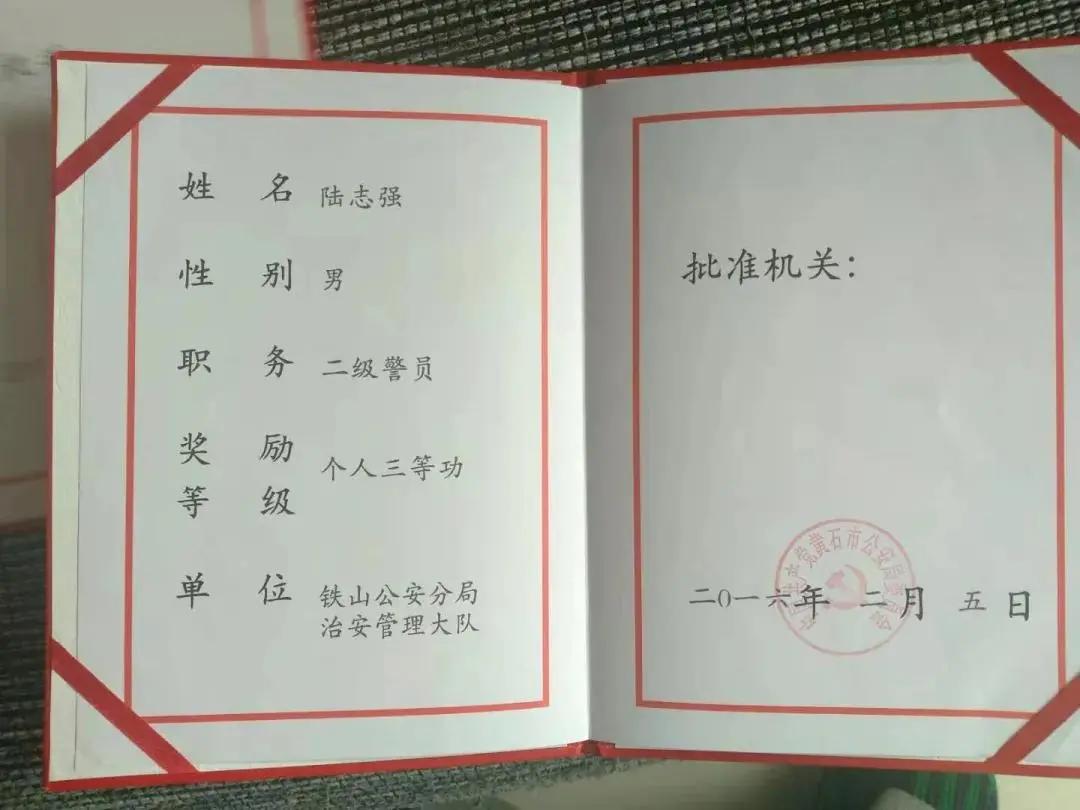 姓 名 陆志强
性 别 男
职 务 二级警员
奖 励
等 级 个人三等功
单 位 铁山公安分局
治安管理大队
批准机关：
中国共产党黄石市公安局委员会
二〇一六年 二月 五日